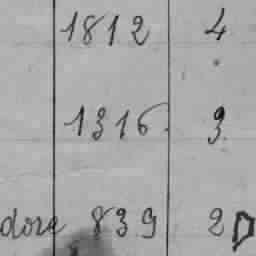 1812 4
1316. 3.
dore 839 20